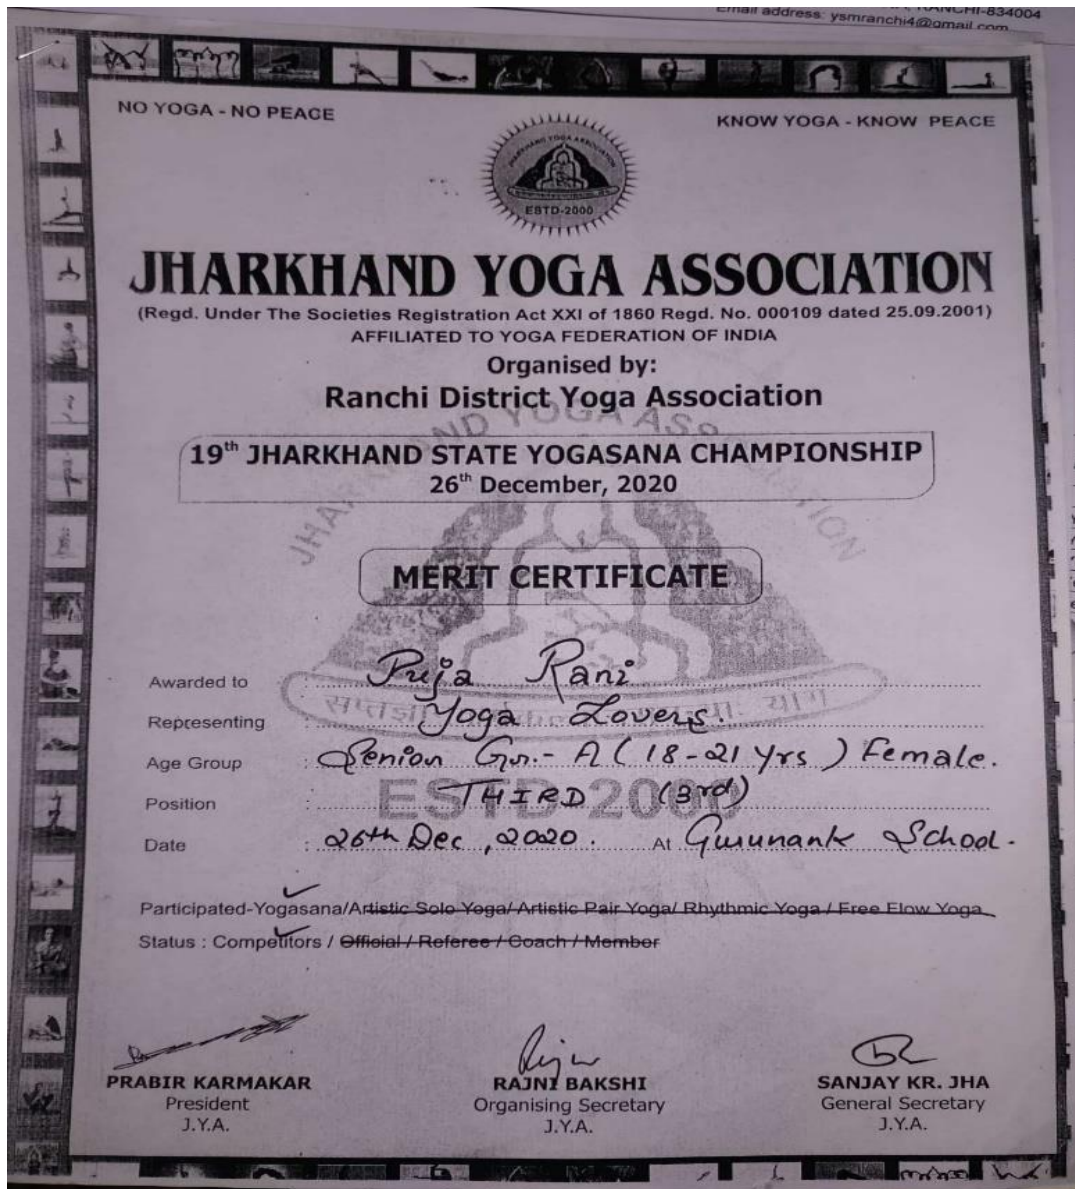 RANCHI-834004
Email address: ysmranchi4@gmail.com
NO YOGA - NO PEACE
KNOW YOGA - KNOW PEACE
JHARKHAND YOGA ASSOCIATION
ESTD-2000
JHARKHAND YOGA ASSOCIATION
(Regd. Under The Societies Registration Act XXI of 1860 Regd. No. 000109 dated 25.09.2001)
AFFILIATED TO YOGA FEDERATION OF INDIA
Organised by:
Ranchi District Yoga Association
JHARKHAND YOGA ASSOCIATION
19th JHARKHAND STATE YOGASANA CHAMPIONSHIP
26th December, 2020
MERIT CERTIFICATE
Awarded to : Puja Rani
Representing : Yoga Lovers.
Age Group : Senion Gr.- A ( 18-21 Yrs ) Female.
Position : THIRD (3rd)
ESTD-2000
Date : 26th Dec, 2020. At Gurunank School.
Participated-Yogasana/Artistic Solo Yoga/ Artistic Pair Yoga/ Rhythmic Yoga / Free Flow Yoga
Status : Competitors / Official / Referee / Coach / Member
PRABIR KARMAKAR
President
J.Y.A.
RAJNI BAKSHI
Organising Secretary
J.Y.A.
SANJAY KR. JHA
General Secretary
J.Y.A.